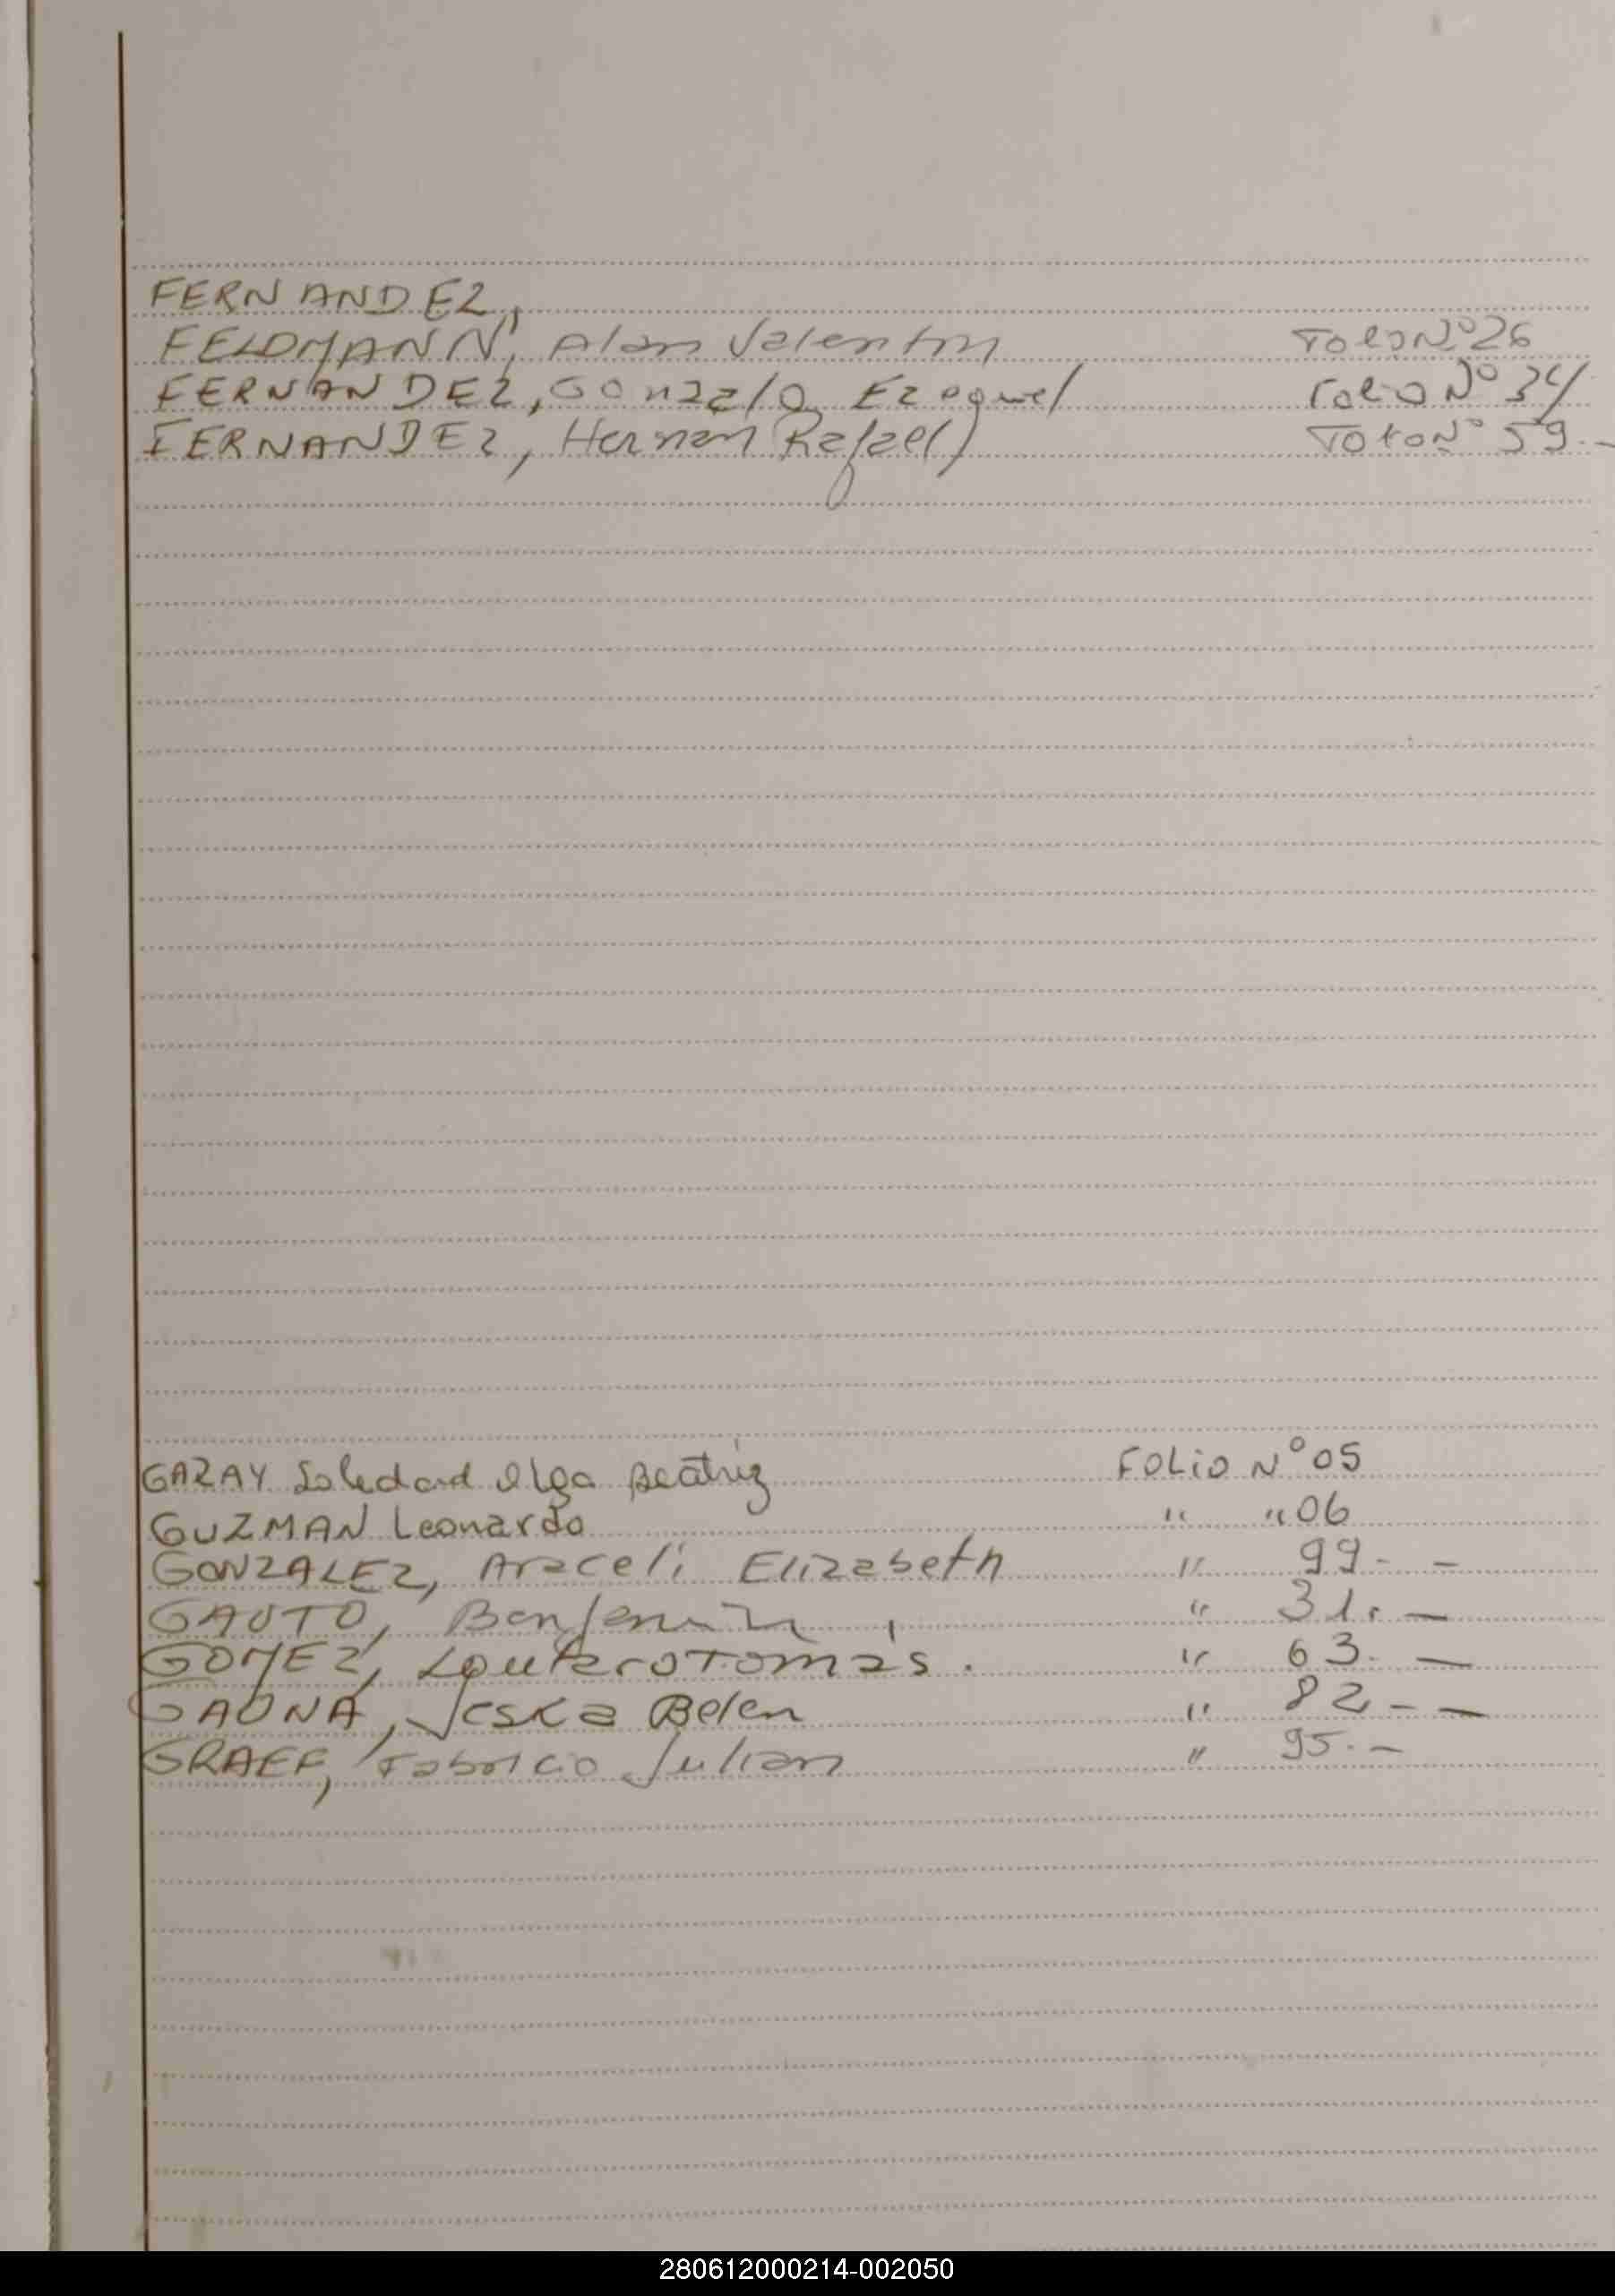 FERNANDEZ,
FELDMANN, Alan Valentin Folio Nº 26
FERNANDEZ, Gonzalo Ezequiel Folio Nº 34
FERNANDEZ, Hernan Rafael Folio Nº 59.-
GARAY Soledad Olga Beatriz FOLiO Nº 05
GUZMAN Leonardo " " 06
GONZALEZ, Araceli Elizabeth " 99.- -
GAUTO, Benjamin " 31. -
GOMEZ, Lautero Tomás. " 63. -
GAONA, Jeska Belen " 82 - -
GRAEF, Fabricio Julian " 95.-
280612000214-002050